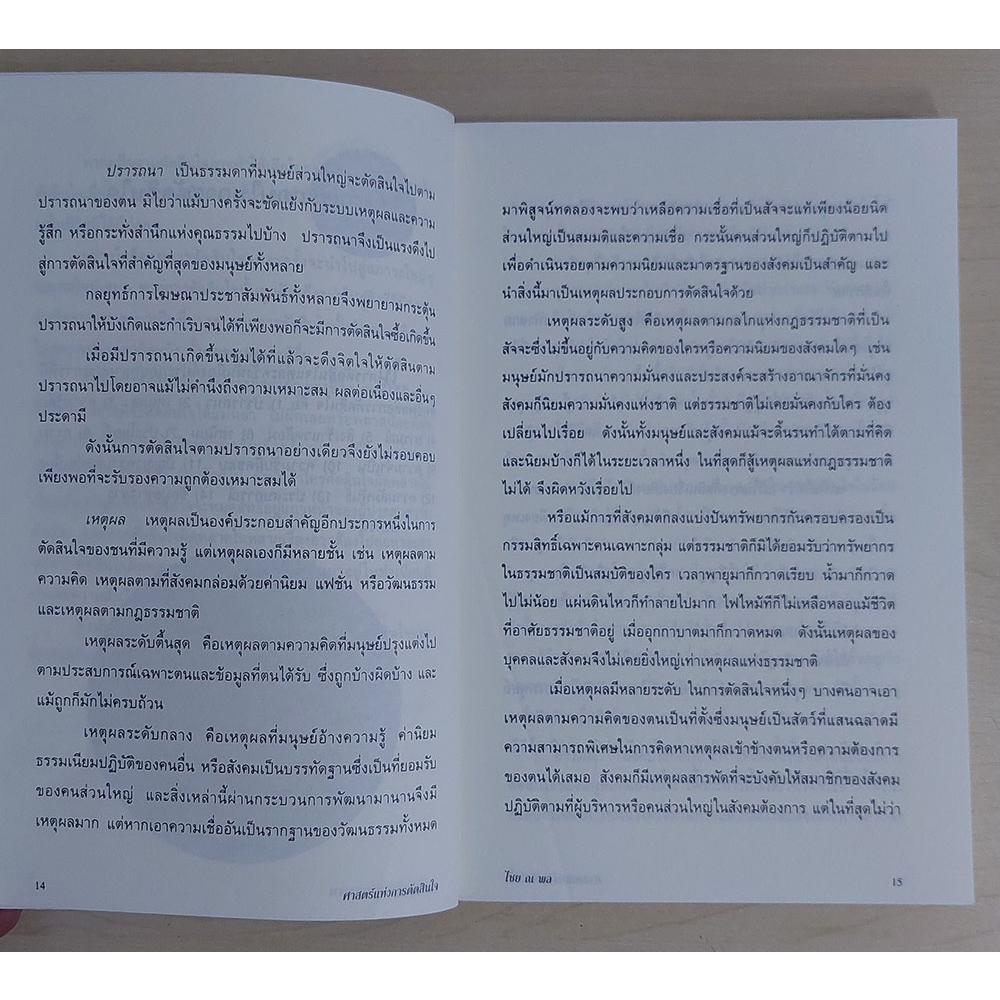 ปรารถนา เป็นธรรมดาที่มนุษย์ส่วนใหญ่จะตัดสินใจไปตาม
ปรารถนาของตน มิไยว่าแม้บางครั้งจะขัดแย้งกับระบบเหตุผลและความ
รู้สึก หรือกระทั่งสำนึกแห่งคุณธรรมไปบ้าง ปรารถนาจึงเป็นแรงดึงไป
สู่การตัดสินใจที่สำคัญที่สุดของมนุษย์ทั้งหลาย
กลยุทธ์การโฆษณาประชาสัมพันธ์ทั้งหลายจึงพยายามกระตุ้น
ปรารถนาให้บังเกิดและกำเริบจนได้ที่เพียงพอก็จะมีการตัดสินใจซื้อเกิดขึ้น
เมื่อมีปรารถนาเกิดขึ้นเข้มได้ที่แล้วจะดึงจิตใจให้ตัดสินตาม
ปรารถนาไปโดยอาจแม้ไม่คำนึงถึงความเหมาะสม ผลต่อเนื่องและอื่นๆ
ประดามี
ดังนั้นการตัดสินใจตามปรารถนาอย่างเดียวจึงยังไม่รอบคอบ
เพียงพอที่จะรับรองความถูกต้องเหมาะสมได้
เหตุผล เหตุผลเป็นองค์ประกอบสำคัญอีกประการหนึ่งในการ
ตัดสินใจของชนที่มีความรู้ แต่เหตุผลเองก็มีหลายชั้น เช่น เหตุผลตาม
ความคิด เหตุผลตามที่สังคมกล่อมด้วยค่านิยม แฟชั่น หรือวัฒนธรรม
และเหตุผลตามกฎธรรมชาติ
เหตุผลระดับตื้นสุด คือเหตุผลตามความคิดที่มนุษย์ปรุงแต่งไป
ตามประสบการณ์เฉพาะตนและข้อมูลที่ตนได้รับ ซึ่งถูกบ้างผิดบ้าง และ
แม้ถูกก็มักไม่ครบถ้วน
เหตุผลระดับกลาง คือเหตุผลที่มนุษย์อ้างความรู้ ค่านิยม
ธรรมเนียมปฏิบัติของคนอื่น หรือสังคมเป็นบรรทัดฐานซึ่งเป็นที่ยอมรับ
ของคนส่วนใหญ่ และสิ่งเหล่านี้ผ่านกระบวนการพัฒนามานานจึงมี
เหตุผลมาก แต่หากเอาความเชื่ออันเป็นรากฐานของวัฒนธรรมทั้งหมด
14
ศาสตร์แห่งการตัดสินใจ
มาพิสูจน์ทดลองจะพบว่าเหลือความเชื่อที่เป็นสัจจะแท้เพียงน้อยนิด
ส่วนใหญ่เป็นสมมติและความเชื่อ กระนั้นคนส่วนใหญ่ก็ปฏิบัติตามไป
เพื่อดำเนินรอยตามความนิยมและมาตรฐานของสังคมเป็นสำคัญ และ
นำสิ่งนี้มาเป็นเหตุผลประกอบการตัดสินใจด้วย
เหตุผลระดับสูง คือเหตุผลตามกลไกแห่งกฎธรรมชาติที่เป็น
สัจจะซึ่งไม่ขึ้นอยู่กับความคิดของใครหรือความนิยมของสังคมใดๆ เช่น
มนุษย์มักปรารถนาความมั่นคงและประสงค์จะสร้างอาณาจักรที่มั่นคง
สังคมก็นิยมความมั่นคงแห่งชาติ แต่ธรรมชาติไม่เคยมั่นคงกับใคร ต้อง
เปลี่ยนไปเรื่อย ดังนั้นทั้งมนุษย์และสังคมแม้จะดิ้นรนทำได้ตามที่คิด
และนิยมบ้างก็ได้ในระยะเวลาหนึ่ง ในที่สุดก็สู้เหตุผลแห่งกฎธรรมชาติ
ไม่ได้ จึงผิดหวังเรื่อยไป
หรือแม้การที่สังคมตกลงแบ่งปันทรัพยากรกันครอบครองเป็น
กรรมสิทธิ์เฉพาะคนเฉพาะกลุ่ม แต่ธรรมชาติก็มิได้ยอมรับว่าทรัพยากร
ในธรรมชาติเป็นสมบัติของใคร เวลาพายุมาก็กวาดเรียบ น้ำมาก็กวาด
ไปไม่น้อย แผ่นดินไหวก็ทำลายไปมาก ไฟไหม้ทีก็ไม่เหลือหลอแม้ชีวิต
ที่อาศัยธรรมชาติอยู่ เมื่ออุกกาบาตมาก็กวาดหมด ดังนั้นเหตุผลของ
บุคคลและสังคมจึงไม่เคยยิ่งใหญ่เท่าเหตุผลแห่งธรรมชาติ
เมื่อเหตุผลมีหลายระดับ ในการตัดสินใจหนึ่งๆ บางคนอาจเอา
เหตุผลตามความคิดของตนเป็นที่ตั้งซึ่งมนุษย์เป็นสัตว์ที่แสนฉลาดมี
ความสามารถพิเศษในการคิดหาเหตุผลเข้าข้างตนหรือความต้องการ
ของตนได้เสมอ สังคมก็มีเหตุผลสารพัดที่จะบังคับให้สมาชิกของสังคม
ปฏิบัติตามที่ผู้บริหารหรือคนส่วนใหญ่ในสังคมต้องการ แต่ในที่สุดไม่ว่า
ไชย ณ พล
15